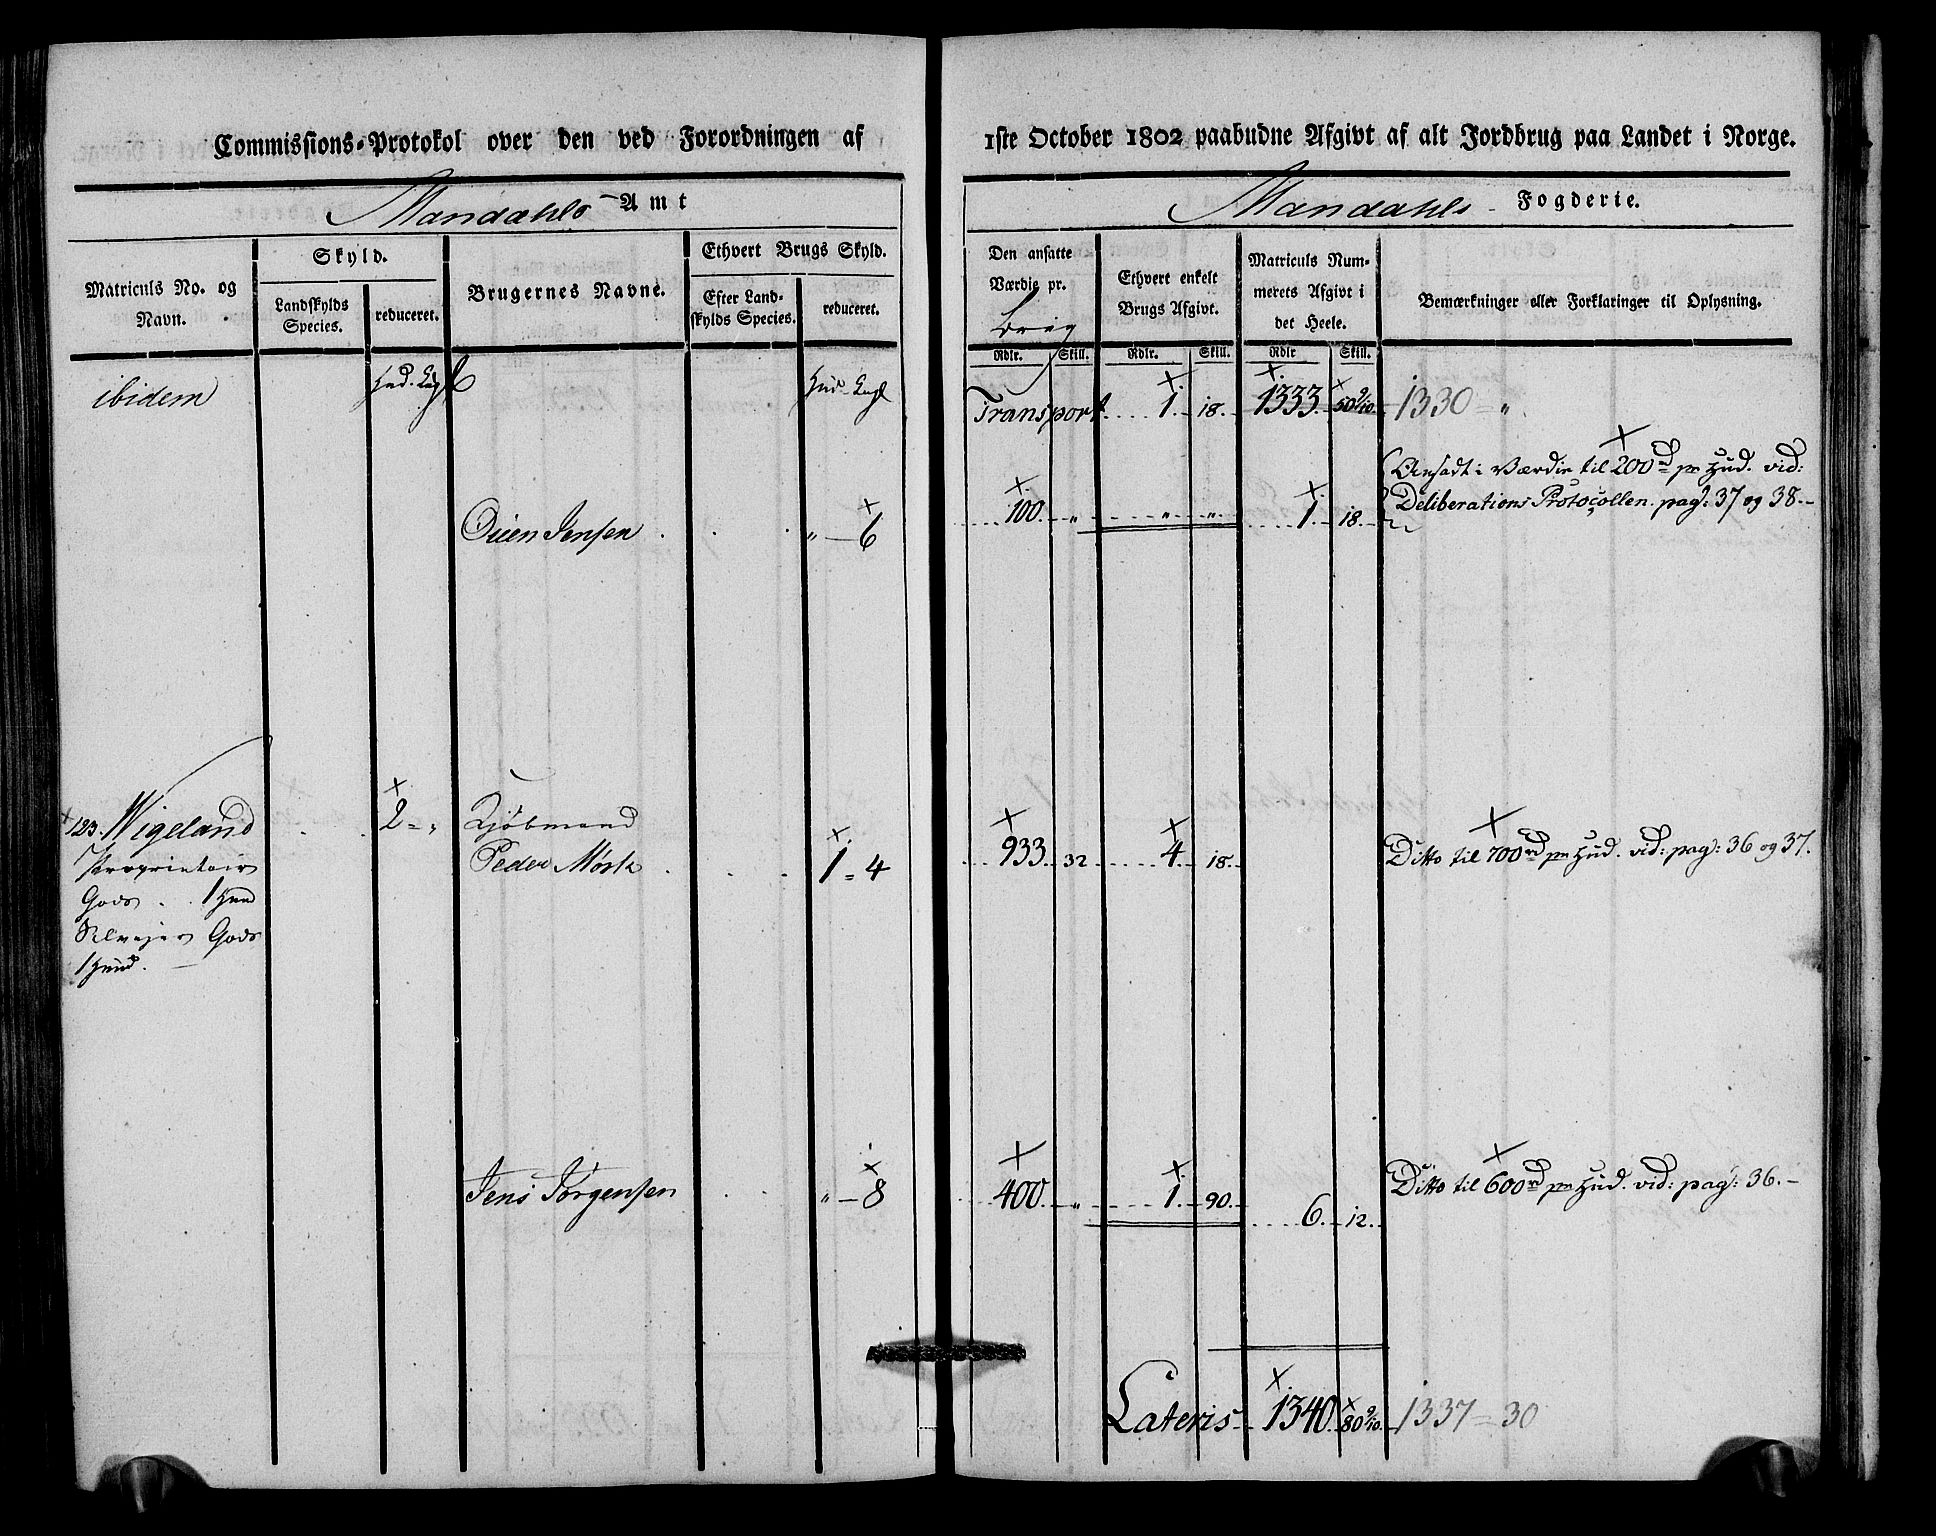 Commissions-Protokol over den ved Forordningen af
Mandahls Amt
Matriculs No. og Navn.
Skyld.
Landskylds Species.
reduceret.
Brugernes Navne.
Ethvert Brugs Skyld.
Efter Landskylds Species.
reduceret.
ibidem
Hud. Eng
Hud. Engl
Ouen Jensen . . . " — 6
123. Wigeland . . 2 = " Kjöbmand
Proprietair Peder Mörk . . . 1 = 4
Gods . . 1 Hud
Selveier Gods
1 Hud. —
Jens Jörgensen . . " — 8
1ste October 1802 paabudne Afgivt af alt Jordbrug paa Landet i Norge.
Mandahls Fogderie.
Den ansatte Værdie pr.
Ethvert enkelt Brugs Afgivt.
Matriculs Nummerets Afgivt i det Heele.
Bemærkninger eller Forklaringer til Oplysning.
Rdlr. Skill. Rdlr. Skill. Rdlr Skill.
Transport 1. 18. 1333. 50 9/10. 1330 = "
Ansadt i Værdie til 200rd pr Hud. vid:
100 " " " 1. 18. Deliberations Protocollen. pag: 37 og 38.—
933. 32 4. 18. Ditto til 700rd pr Hud. vid: pag: 36 og 37.
400. " 1. 90. Ditto til 600rd pr Hud. vid: pag: 36.—
6. 12.
Lateris 1340. 80 9/10. 1337 = 30